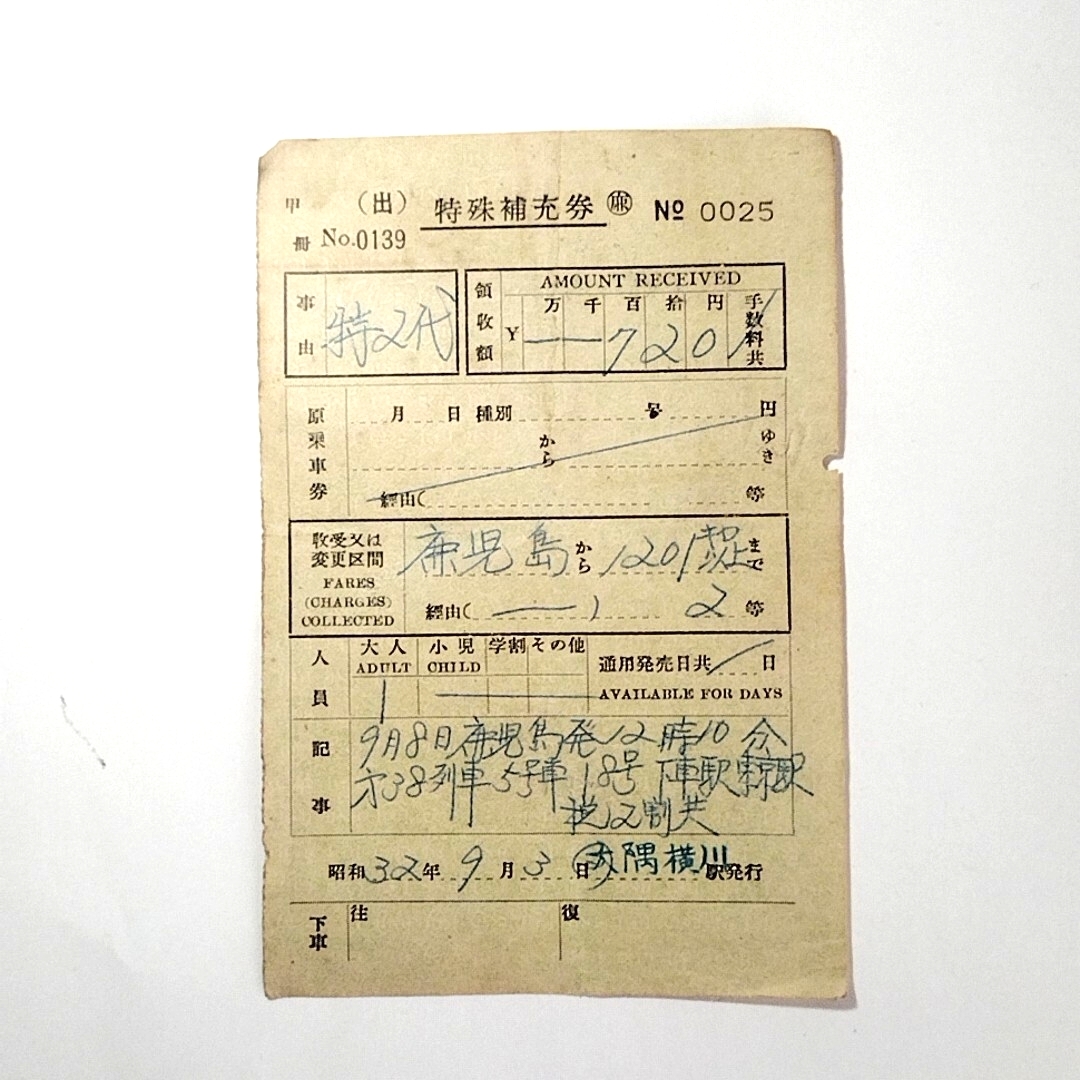 甲 (出) 特殊補充券 ㊞ № 0025
冊 No.0139
事由 特2代
領収額 AMOUNT RECEIVED
万 千 百 拾 円 手数料共
Y 720
原乗車券 月 日 種別 号 円
から ゆき
経由( 等
収受又は変更区間 鹿児島から 1201 キロ以上 まで
FARES (CHARGES) COLLECTED 経由( ー ) 2 等
人員 大人 小児 学割 その他 通用発売日共 日
ADULT CHILD AVAILABLE FOR DAYS
1
記事 9月8日鹿児島発12時10分
才38列車5号車18号 下車駅東京駅
税2割共
昭和32年9月3日 大隅横川駅発行
下車 往 復